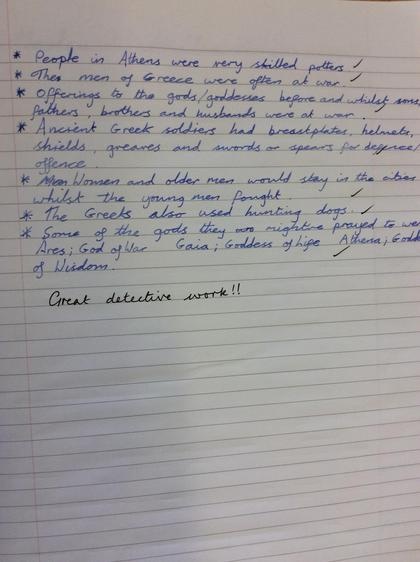 * People in Athens were very skilled potters ✓
* The men of Greece were often at war. ✓
* Offerings to the gods/goddesses before and whilst sons,
fathers, brothers and husbands were at war.
* Ancient Greek soldiers had breastplates, helmets,
shields, greaves and swords or spears for defence/
offence.
* Women and older men would stay in the cities
whilst the young men fought ✓
* The Greeks also used hunting dogs. ✓
* Some of the gods they might've prayed to we
Ares; God of War Gaia; Goddess of Life Athena; Godd
of Wisdom.
Great detective work!!